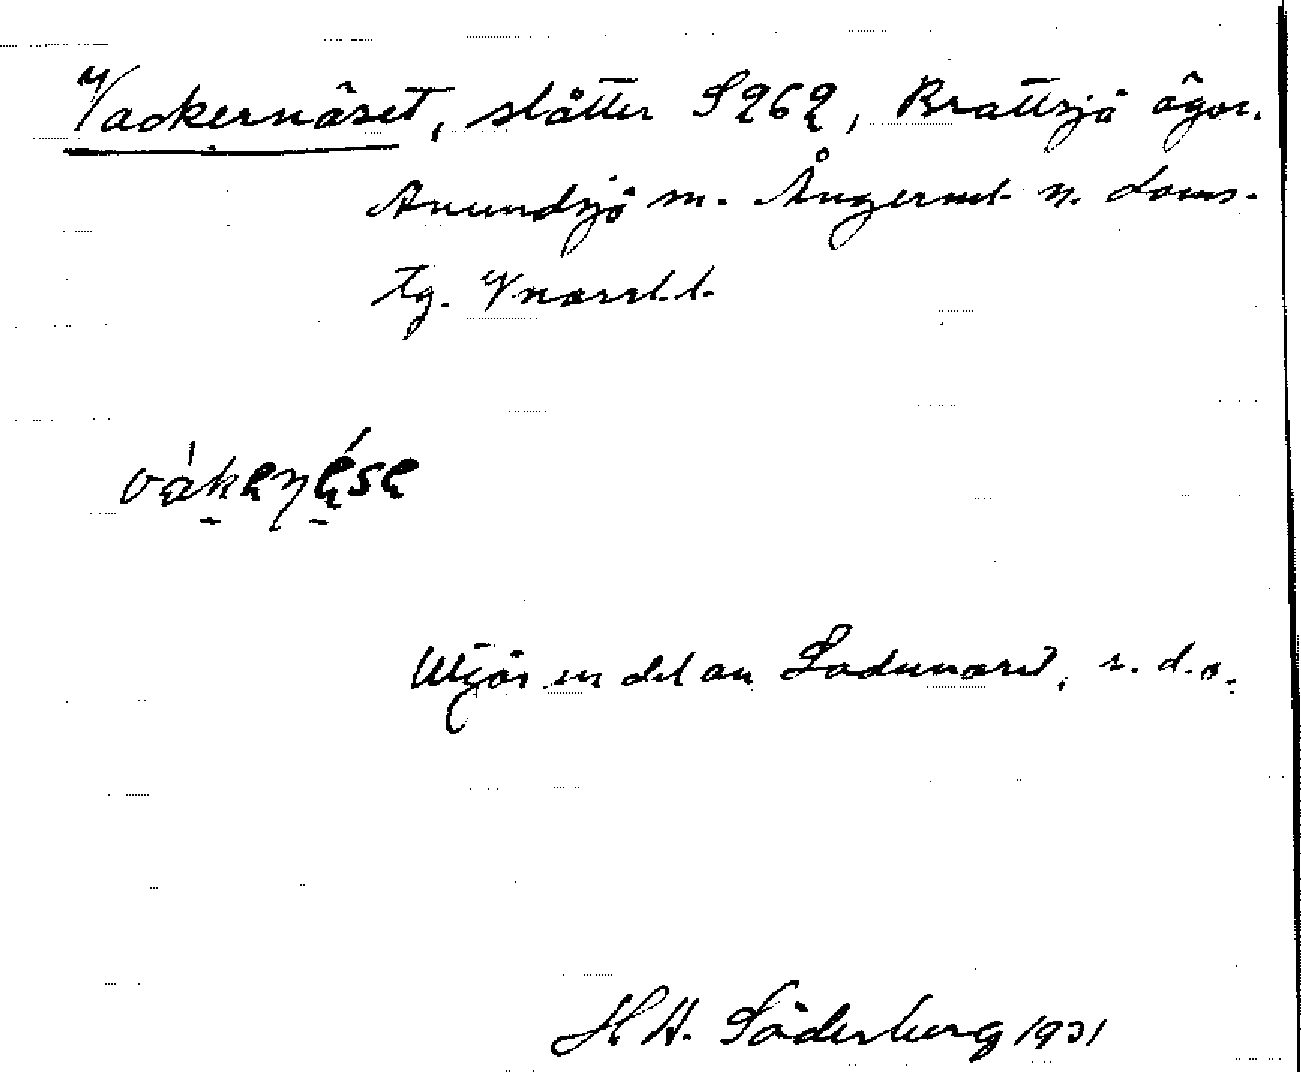 Vackernäset, slåtter S262, Brattsjö ägor.
Anundsjö sn. Ångerml. n. doms.
tg. Vnorrl. l.
våkenése
Utgör en del av Ladunäset, s. d. o.
H H. Söderberg 1931